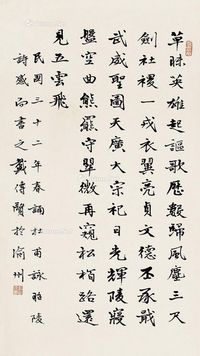 草昧英雄起謳歌歷數歸風塵三尺
劍社稷一戎衣翼亮貞文德丕承戢
武威聖圖天廣大宗祀日光輝陵寢
盤空曲熊羆守翠微再窺松柏路還
見五雲飛
民國三十二年春誦杜甫詠昭陵
詩感而書之戴傳賢於渝州